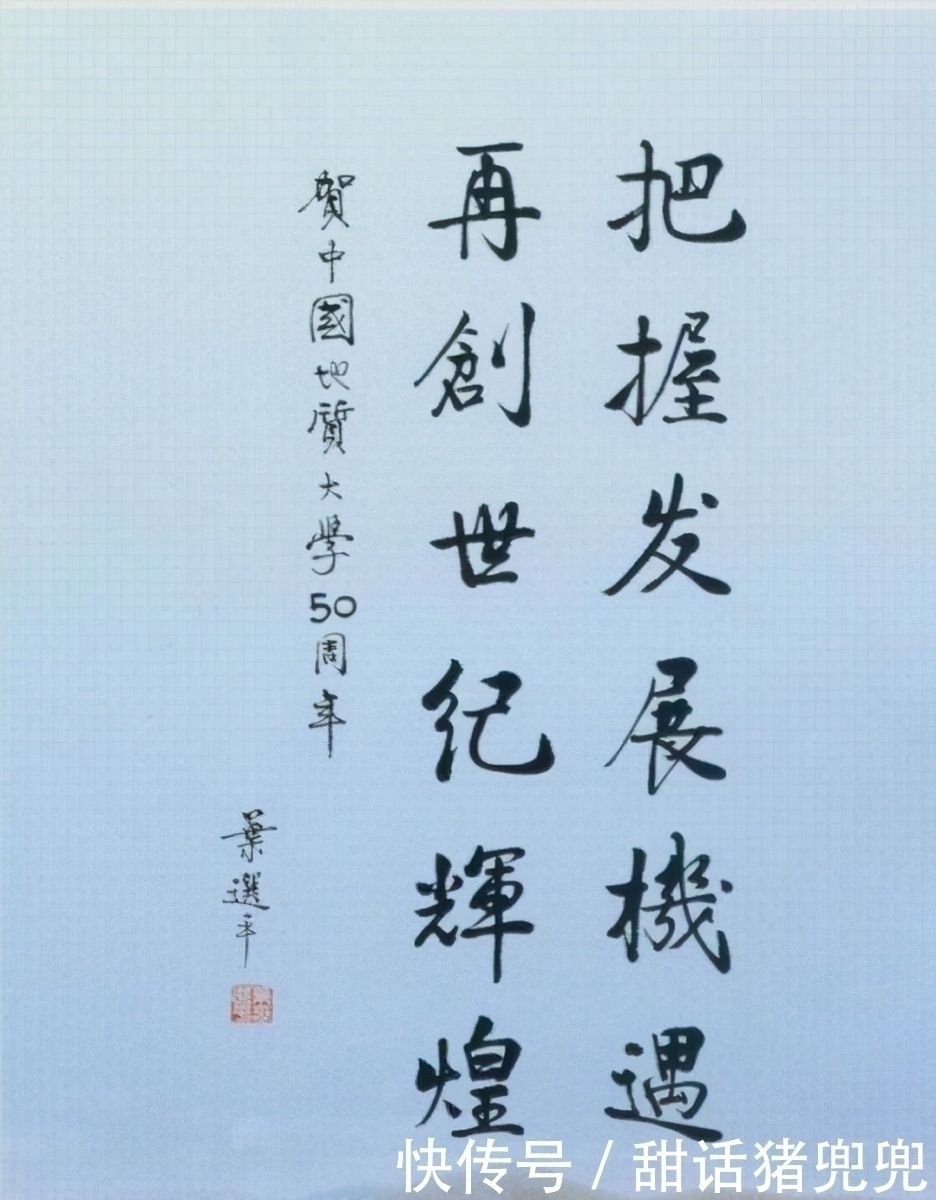 把握发展機遇
再創世纪輝煌
賀中國地質大學50周年
葉選平
快传号 / 甜话猪兜兜